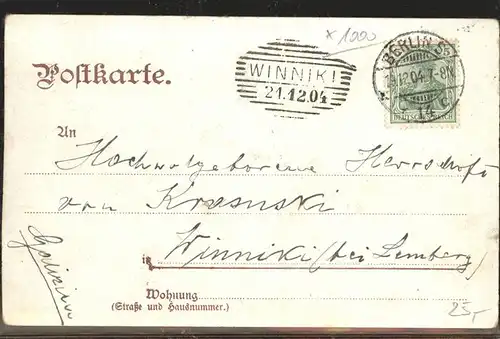 * 1000
WINNIKI
21.12.04
BERLIN
12.04.7-8N.
DEUTSCHES REICH
Postkarte.
An
Hochwolgeborene Herrschaft
von Krasuski
in Winniki (bei Lemberg)
Galizien
Wohnung
(Straße und Hausnummer.)
25,-